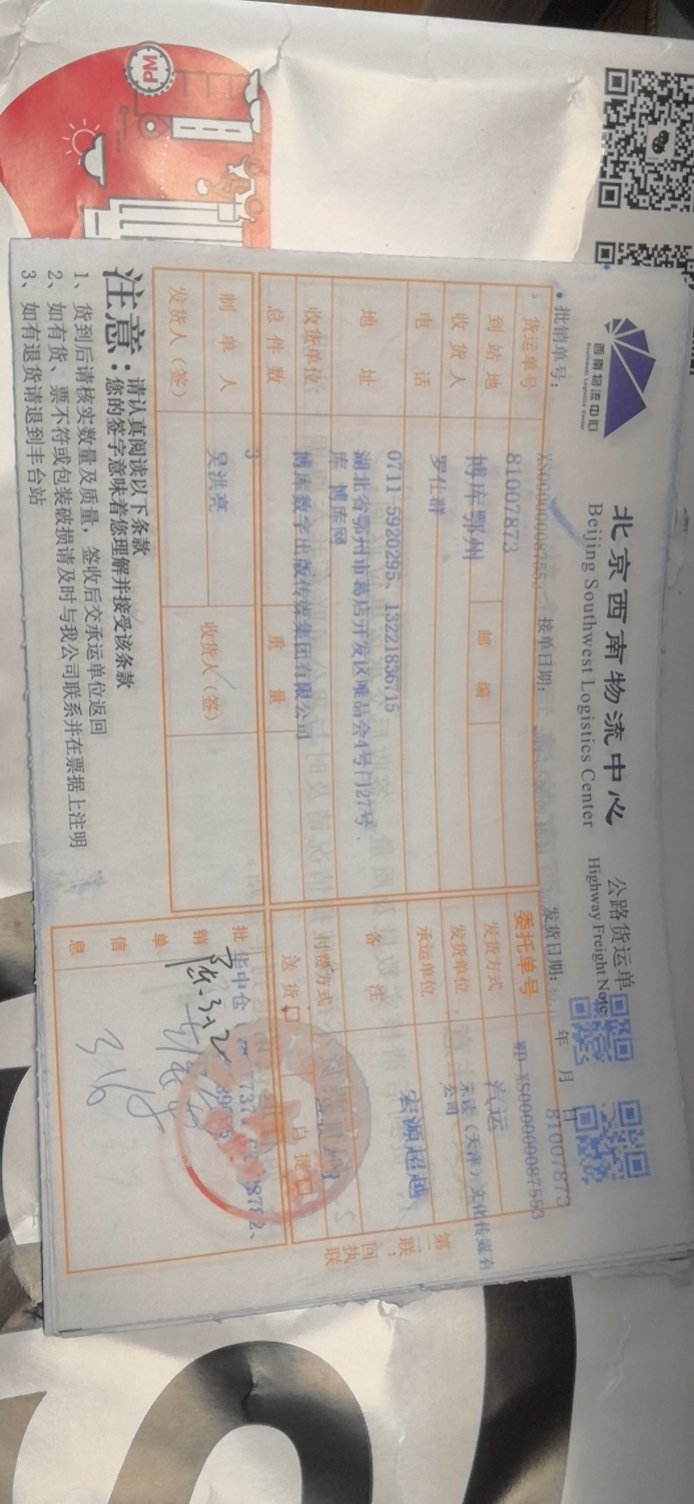 PM
西南物流中心
Southwest Logistics Center
北京西南物流中心
公路货运单
Beijing Southwest Logistics Center
Highway Freight Note
批销单号：
接单日期：
发货日期：
年 月 日
81007873
货运单号
81007873
委托单号
到站地
博库鄂州
邮编
发货方式
汽运
收货人
罗仕群
发货单位
未读（天津）文化传媒有
公司
电话
0711-5920295、13221836715
承运单位
宏源超越
地址
湖北省鄂州市葛店开发区唯品会4号门27号、
库 博库网
备注
收货单位
博库数字出版传媒集团有限公司
付费方式
总件数
3
重量
送货口
自提口
制单人
吴洪亮
收货人（签）
发货人（签）
批销单信息
华中仓
第二联：回执联
注意：
请认真阅读以下条款
您的签字意味着您理解并接受该条款
1、货到后请核实数量及质量，签收后交承运单位返回
2、如有货、票不符或包装破损请及时与我公司联系并在票据上注明
3、如有退货请退到丰台站